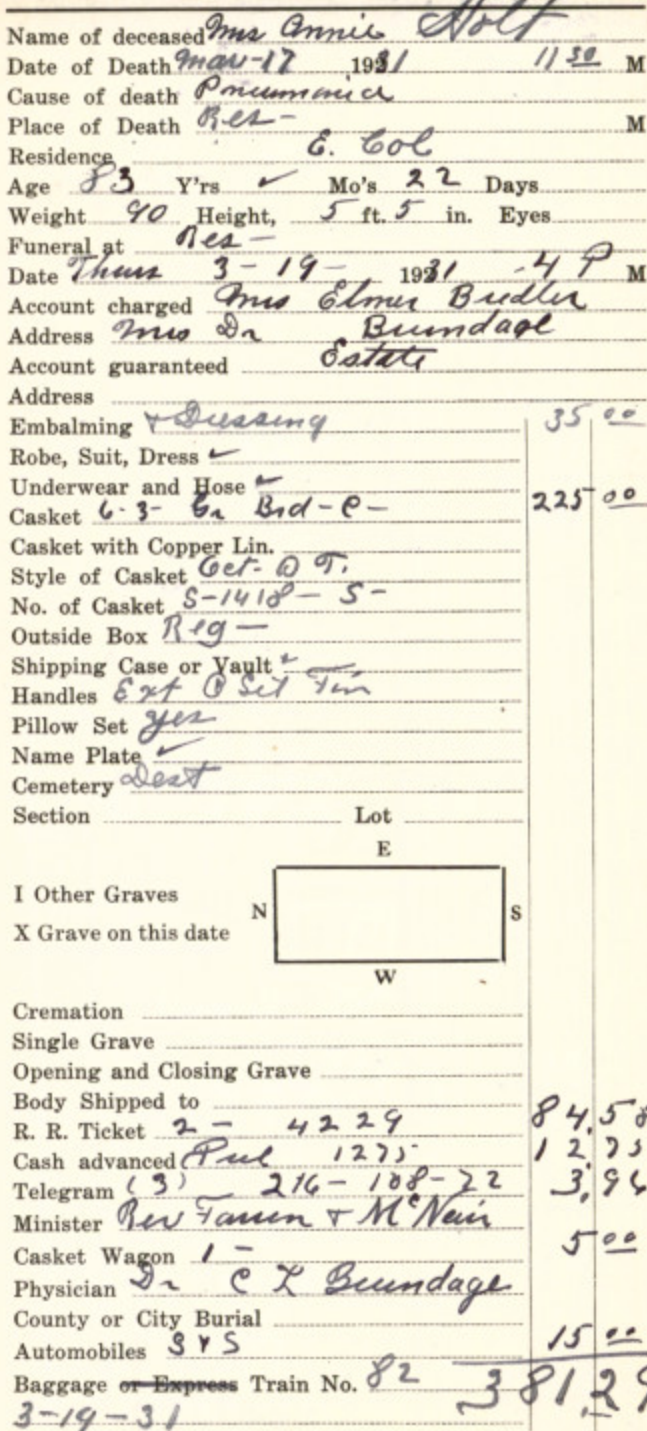 Name of deceased Mrs Annie Holt
Date of Death Mar-17 1931 11 30 M
Cause of death Pneumonia
Place of Death Res- M
Residence E. Col
Age 83 Y'rs ✓ Mo's 22 Days
Weight 90 Height, 5 ft. 5 in. Eyes
Funeral at Res-
Date Thurs 3-19- 1931 -4 P M
Account charged Mrs Elmer
Address Mrs Dr Brundage
Account guaranteed Estate
Address
Embalming + Dressing 35 00
Robe, Suit, Dress ✓
Underwear and Hose ✓
Casket 6-3- Gr Brd-C- 225 00
Casket with Copper Lin.
Style of Casket Oct- D T.
No. of Casket S-1418-S-
Outside Box Reg-
Shipping Case or Vault ✓
Handles Ext
Pillow Set yes
Name Plate ✓
Cemetery Dest
Section Lot
E
I Other Graves
N S
X Grave on this date
W
Cremation
Single Grave
Opening and Closing Grave
Body Shipped to
R. R. Ticket 2- 4229 84.58
Cash advanced Pul 1275 12 75
Telegram (3) 216-108-72 3,96
Minister Rev & McNair
Casket Wagon 1- 5 00
Physician Dr C L Brundage
County or City Burial
Automobiles S & S 15 00
Baggage or Express Train No. 82 381,29
3-19-31